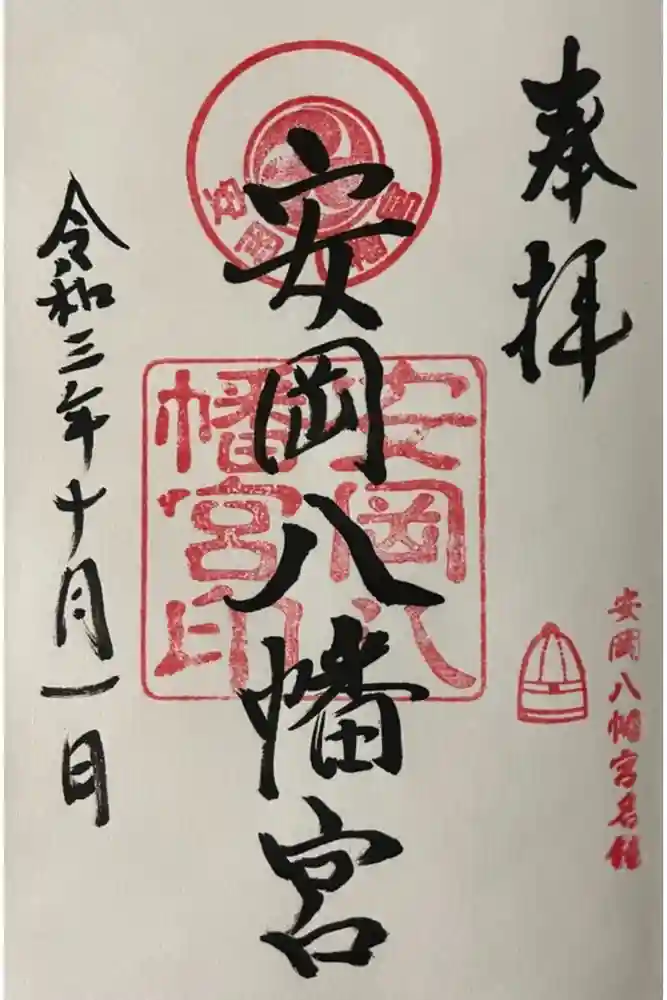 奉拝
安岡八幡宮
令和三年十月一日
安岡八幡宮印
安岡八幡宮名鐘